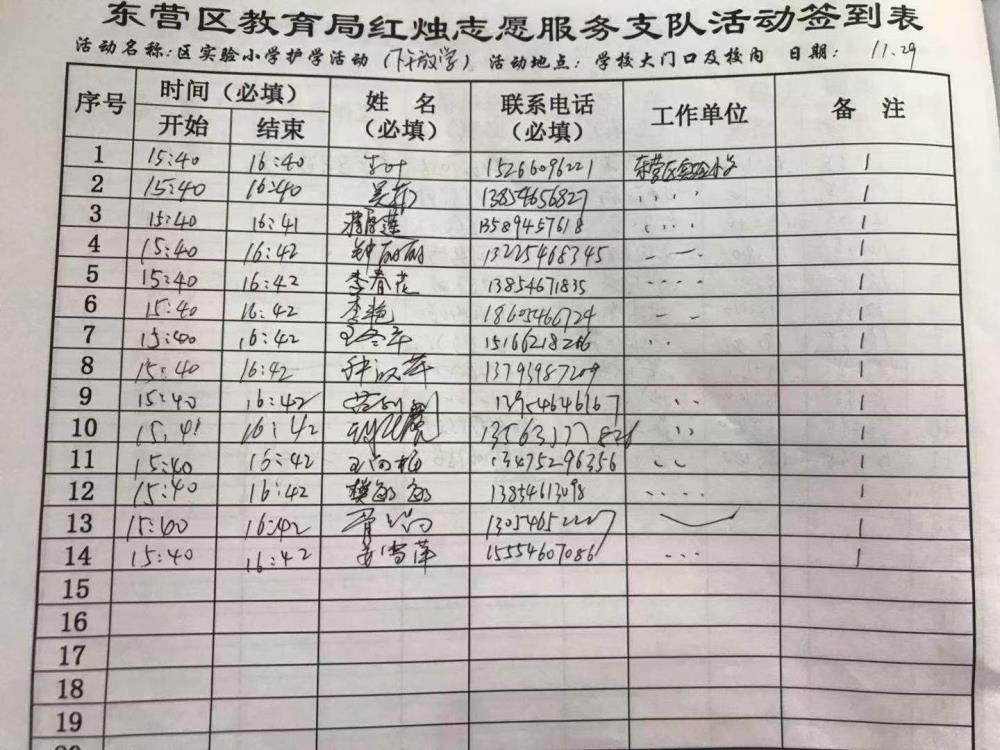 东营区教育局红烛志愿服务支队活动签到表
活动名称:区实验小学护学活动（下午放学） 活动地点：学校大门口及校内 日期： 11.29
序号 时间（必填） 姓 名 联系电话 工作单位 备 注
开始 结束 （必填） （必填）
1 15:40 16:40 15266096221 东营区实验小学 1
2 15:40 16:40 13854656827 〃 1
3 15:40 16:41 13589457618 1
4 15:40 16:42 钟丽丽 13225468345 1
5 15:40 16:42 李春花 13854671835 1
6 15:40 16:42 李艳 18605466724 1
7 15:40 16:42 15166218266 1
8 15:40 16:42 13793987209 1
9 15:40 16:42 1
10 15:41 16:42 1
11 15:40 16:42 13475296356 1
12 15:40 16:42 13854613098 1
13 16:42 1
14 15:40 16:42 15554607086 1
15
16
17
18
19